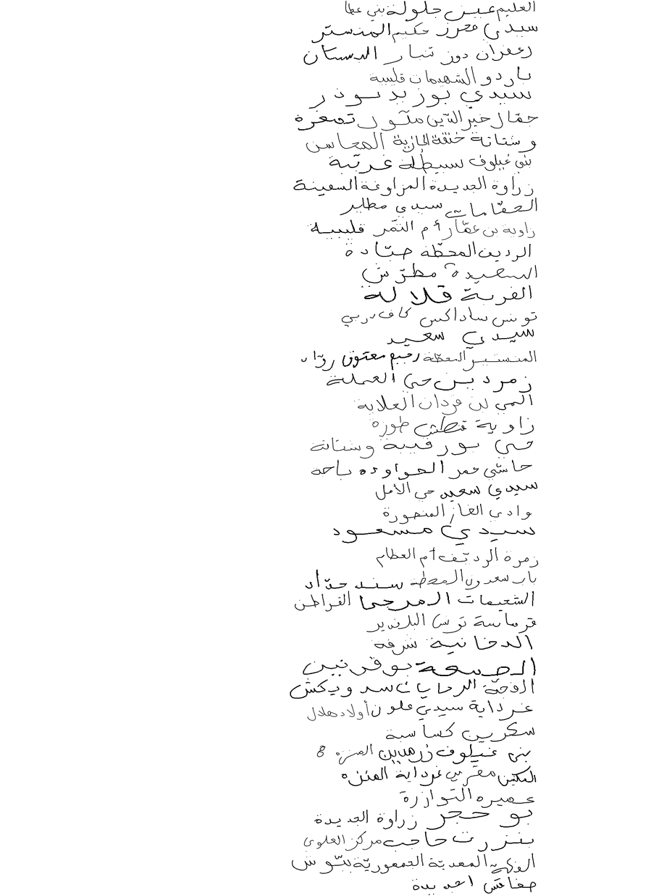 العليم عين جلولة بني عطا
سيدي محرز حكيم المنستر
زعفران دوز تينار البستان
باردو الشهيمات قليبية
سيدي بوزيد بوذر
حفال خير الدين متلوك تمغزة
وشتانة خنقة الجازية المحاسن
بني غيلوف سبيطلة غرتبة
زراوة الجديدة المزاوغة السفينة
الحقامات سيدي مطير
زاوية بن عمار أم الثمر قليبية
الرديف المحطة حتادة
السعيدة مطرش
القرية قلالة
تونس ساداكس كاف دربي
سيدي سعيد
المنستير المحطة رجيم معتوق روّاد
زمردين حي العملة
المي بن قردان العلاية
زاوية قطش طورة
حي بورقيبة وشتانة
حاشي عمر الحواودة باجة
سيدي سعيد حي الأمل
وادي الغاز المنصورة
سيدي مسعود
زمرة الرديف أم العظام
باب سعدون المحطة سند حدّاد
الشعيمات المرجى القراطن
قرماسة تونس البلفدير
الدخانية شرفة
الصمعة بوقرنين
الفجة الرمايات سد ويكش
غرداية سيدي علون أولاد هلال
سكرين كساسبة
بني غيلوف زرمدين المنزه 8
المكنين مقرين غرداية الفنزه
عميرة التوازرة
بو حجر زراوة الجديدة
بنزرت حاجب مركز العلوي
الوكرية المعدية الجمهورية بتونس
صفاقس احديدة